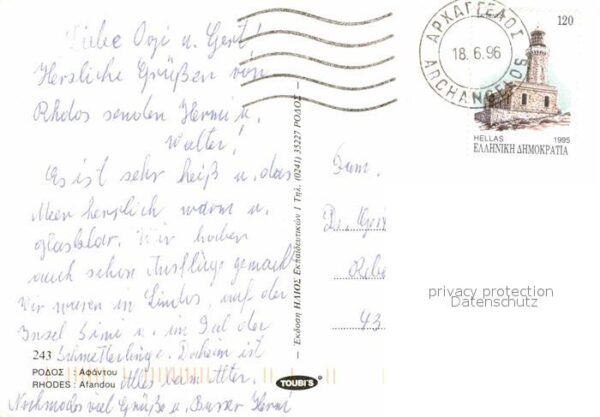 Liebe Ossi u. Gert!
Herzliche Grüßen von
Rhodos senden Hermi u.
Walter!
Es ist sehr heiß u. das
Meer herrlich warm u.
glasklar. Wir haben
auch schon Ausflüge gemacht
Wir waren in Lindos, auf der
Insel Simi u. im Tal der
Schmetterlinge. Daheim ist
Alles beim Alten.
Nochmals viel Grüße u. Busser Hermi
243
ΡΟΔΟΣ : Αφάντου
RHODES : Afandou
Έκδοση ΗΛΙΟΣ Εκπαιδευτικών 1 Τηλ. (0241) 35227 ΡΟΔΟΣ
TOUBI'S
ΑΡΧΑΓΓΕΛΟΣ
18.6.96
ARCHANGELOS
120
HELLAS 1995
ΕΛΛΗΝΙΚΗ ΔΗΜΟΚΡΑΤΙΑ
Fam.
43
privacy protection
Datenschutz